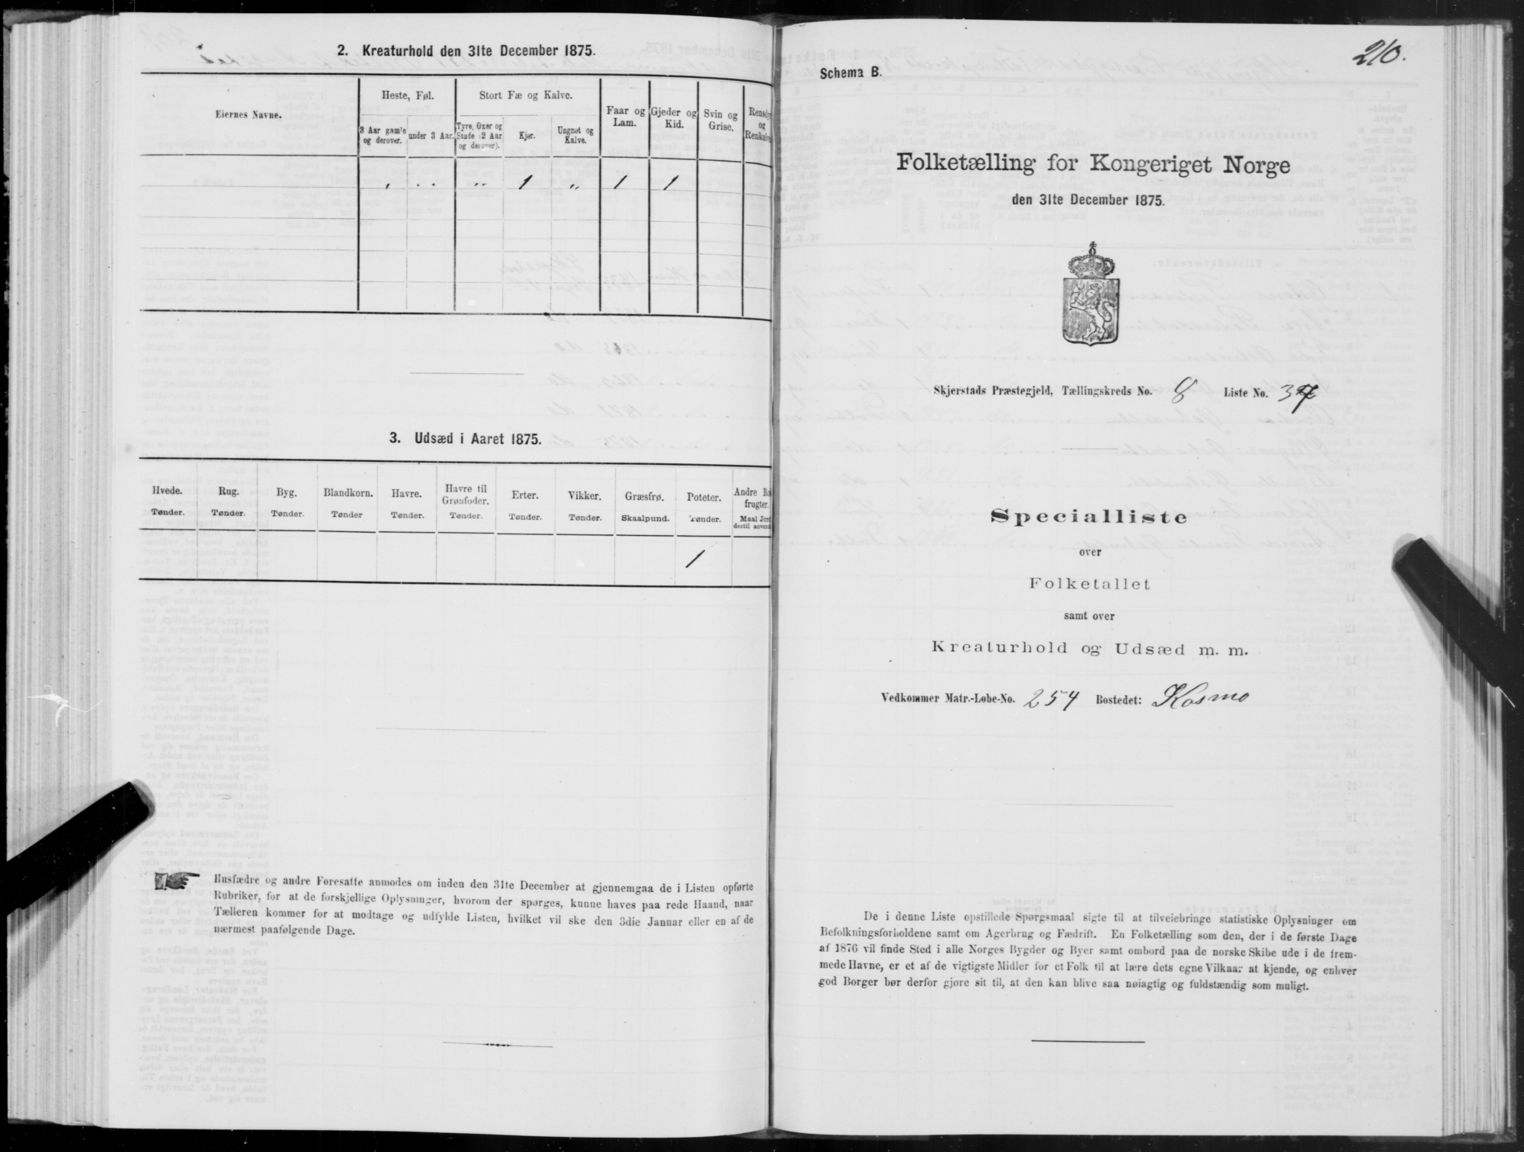 2. Kreaturhold den 31te December 1875.
Eiernes Navne.
Heste, Føl.
Stort Fæ og Kalve.
Faar og Lam.
Gjeder og Kid.
Svin og Grise.
og
3 Aar gamle og derover.
under 3 Aar.
Tyre, Oxer og Stude (2 Aar og derover).
Kjør.
Ungnøt og Kalve.
1 1 1
3. Udsæd i Aaret 1875.
Hvede. Rug. Byg. Blandkorn. Havre. Havre til Grønfoder. Erter. Vikker. Græsfrø. Poteter. Andre
Tønder. Tønder. Tønder. Tønder Tønder. Tønder. Tønder. Tønder. Skaalpund. Tønder. Maal
1
Husfædre og andre Foresatte anmodes om inden den 31te December at gjennemgaa de i Listen opførte
Rubriker, for at de forskjellige Oplysninger, hvorom der spørges, kunne haves paa rede Haand, naar
Tælleren kommer for at modtage og udfylde Listen, hvilket vil ske den 3die Januar eller en af de
nærmest paafølgende Dage.
210.
Schema B.
Folketælling for Kongeriget Norge
den 31te December 1875.
Skjerstads Præstegjeld, Tællingskreds No. 8 Liste No. 37
Specialliste
over
Folketallet
samt over
Kreaturhold og Udsæd m. m.
Vedkommer Matr.-Løbe-No. 254 Bostedet: Kosmo
De i denne Liste opstillede Spørgsmaal sigte til at tilveiebringe statistiske Oplysninger om
Befolkningsforholdene samt om Agerbrug og Fædrift. En Folketælling som den, der i de første Dage
af 1876 vil finde Sted i alle Norges Bygder og Byer samt ombord paa de norske Skibe ude i de frem-
mede Havne, er et af de vigtigste Midler for et Folk til at lære dets egne Vilkaar at kjende, og enhver
god Borger bør derfor gjøre sit til, at den kan blive saa nøiagtig og fuldstændig som muligt.